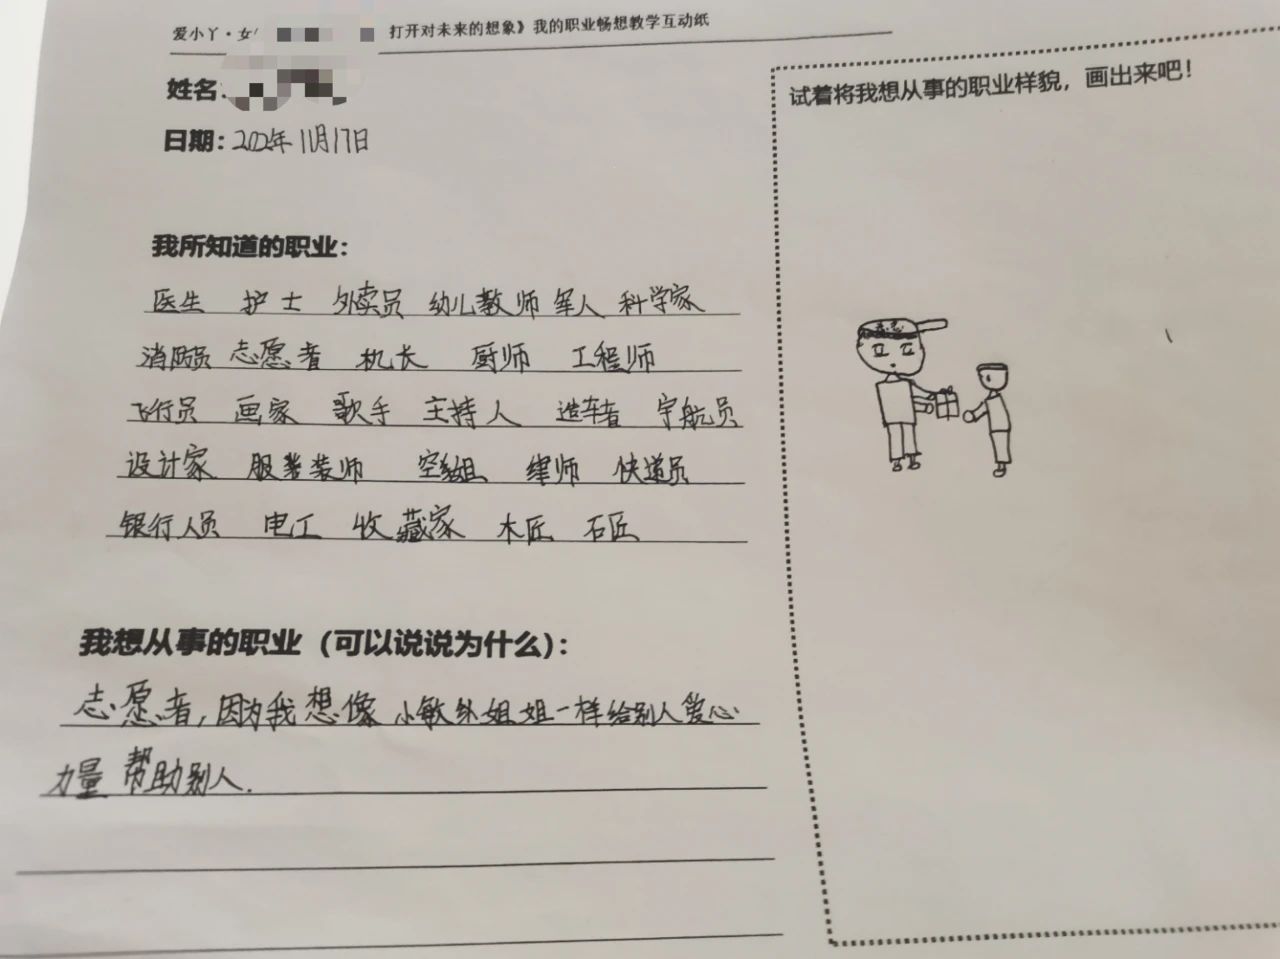 爱小丫·女
打开对未来的想象》我的职业畅想教学互动纸
姓名:
日期：202年11月17日
我所知道的职业：
医生 护士 外卖员 幼儿教师 军人 科学家
消防员 志愿者 机长 厨师 工程师
飞行员 画家 歌手 主持人 造车者 宇航员
设计家 服装师 空姐 律师 快递员
银行人员 电工 收藏家 木匠 石匠
我想从事的职业（可以说说为什么）：
志愿者，因为我想像小敏姐姐一样给别人爱心
力量 帮助别人.
试着将我想从事的职业样貌，画出来吧！